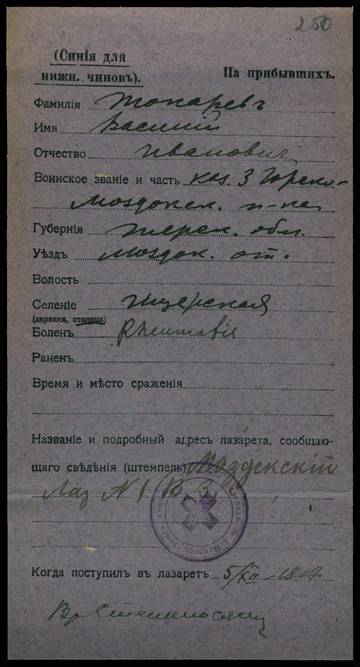 250
(Синія для
нижн. чиновъ).
На прибывшихъ.
Фамилія Токаревъ
Имя Василий
Отчество Иванович
Воинское званіе и часть каз. 3 Горско-
Моздокск. п-ка
Губернія Терск. обл.
Уѣздъ Моздок. от.
Волость
Селеніе Ищерская
(деревня, станица)
Боленъ
Раненъ
Время и мѣсто сраженія
Названіе и подробный адресъ лазарета, сообщаю-
щаго свѣдѣнія (штемпель) Моздокскій
Лаз N 1 В. В.
Когда поступилъ въ лазаретъ 5/XII-1917
Вр.